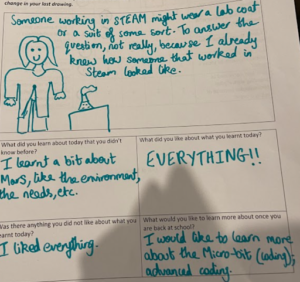 change in your last drawing.
Someone working in STEAM might wear a lab coat
or a suit of some sort. To answer the
question, not really, because I already
knew how someone that worked in
Steam looked like.
What did you learn about today that you didn't
know before?
I learnt a bit about
Mars, like the environment,
the needs, etc.
What did you like about what you learnt today?
EVERYTHING!!
Was there anything you did not like about what you
learnt today?
I liked everything.
What would you like to learn more about once you
are back at school?
I would like to learn more
about the Micro-bit (coding);
advanced coding.